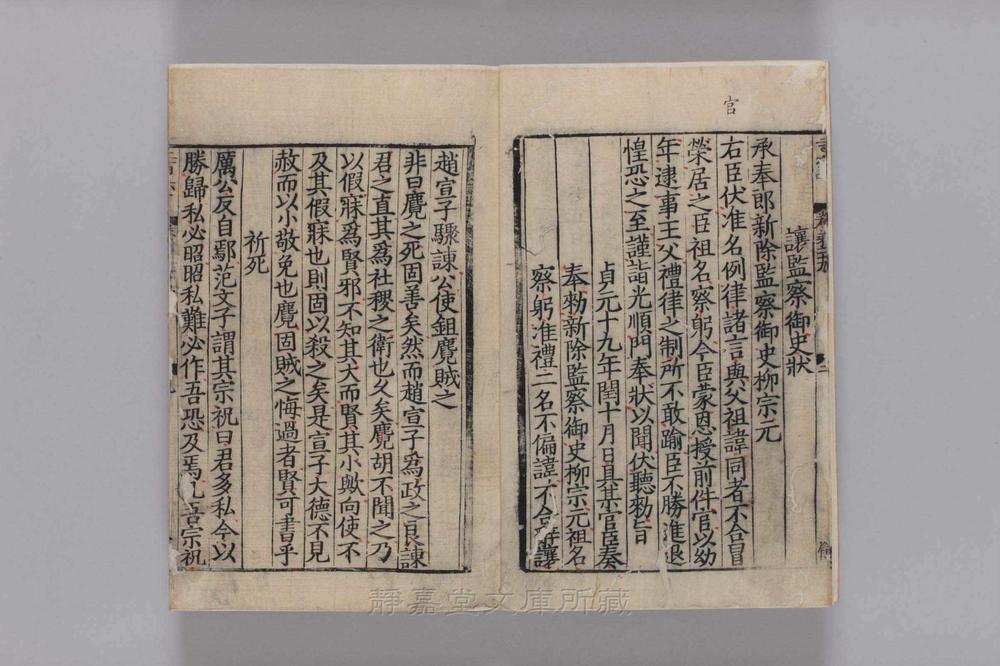 官
讓監察御史狀
承奉郎新除監察御史柳宗元
右臣伏准名例律諸言與父祖諱同者不合冒
榮居之臣祖名察躬今臣蒙恩授前件官以幼
年逮事王父禮律之制所不敢踰臣不勝進退
惶恐之至謹詣光順門奉狀以聞伏聽勑旨
貞元十九年閏十月日具某官臣奏
奉勑新除監察御史柳宗元祖名
察躬准禮二名不偏諱不合辭讓
趙宣子驟諫公使鉏麑賊之
非曰麑之死固善矣然而趙宣子爲政之良諫
君之直其爲社稷之衛也久矣麑胡不聞之乃
以假寐爲賢邪不知其大而賢其小歟向使不
及其假寐也則固以殺之矣是宣子大德不見
赦而以小敬免也麑固賊之悔過者賢可書乎
祈死
厲公反自鄢范文子謂其宗祝曰君多私今以
勝歸私必昭昭私難必作吾恐及焉凡吾宗祝
靜嘉堂文庫所藏